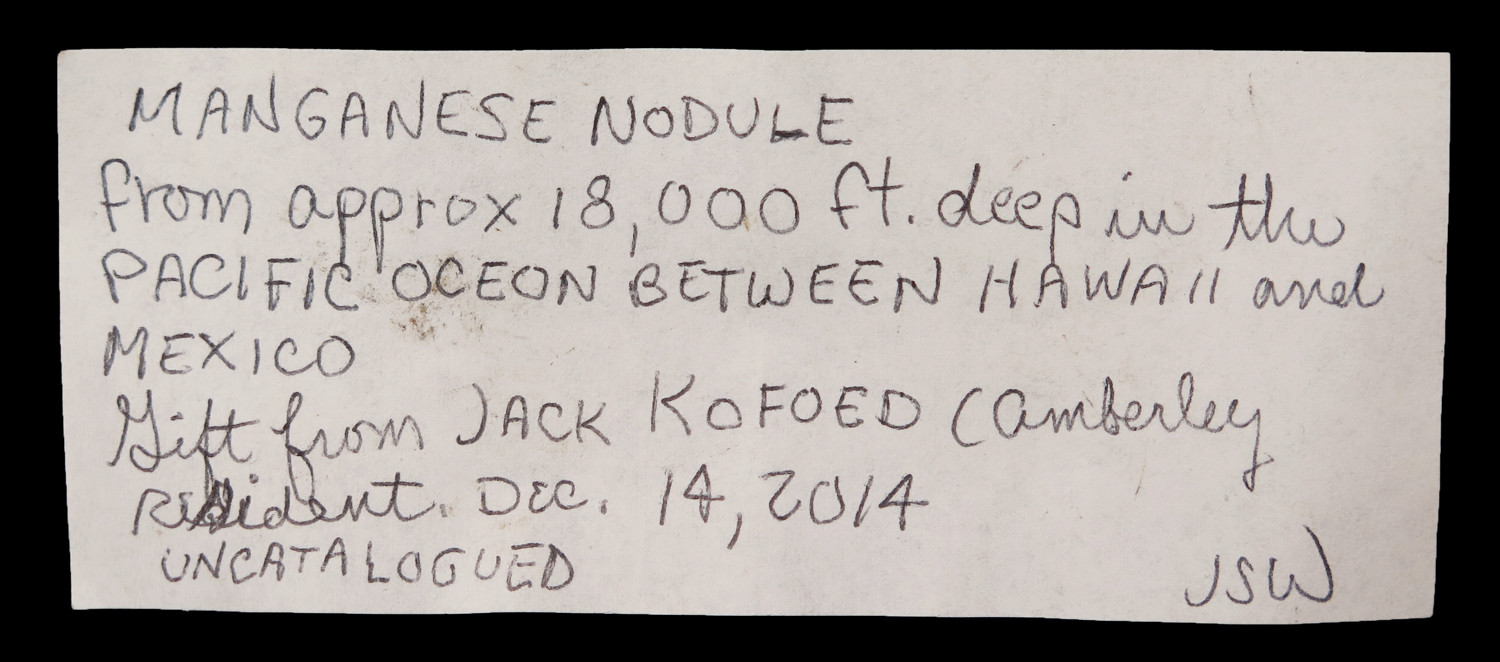 MANGANESE NODULE
from approx 18,000 ft. deep in the
PACIFIC OCEON BETWEEN HAWAII and
MEXICO
Gift from JACK KOFOED (Amberley
Resident. DEC. 14, 2014
UNCATALOGUED
JSW